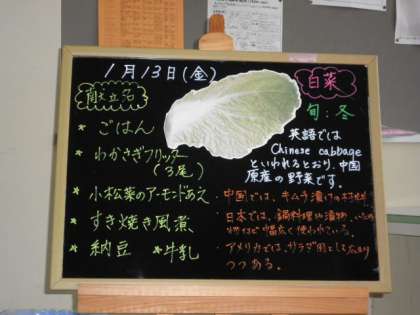 1月13日(金)
献立名
* ごはん
* わかさぎフリッター
(3尾)
* 小松菜のアーモンドあえ
* すき焼き風煮
* 納豆 * 牛乳
白菜
旬:冬
英語では
Chinese cabbage
といわれるとおり、中国
原産の野菜です。
・中国では、キムチ漬けの材料
・日本では、鍋料理や漬物、いため
物など幅広く使われている。
・アメリカでは、サラダ用として広まり
つつある。